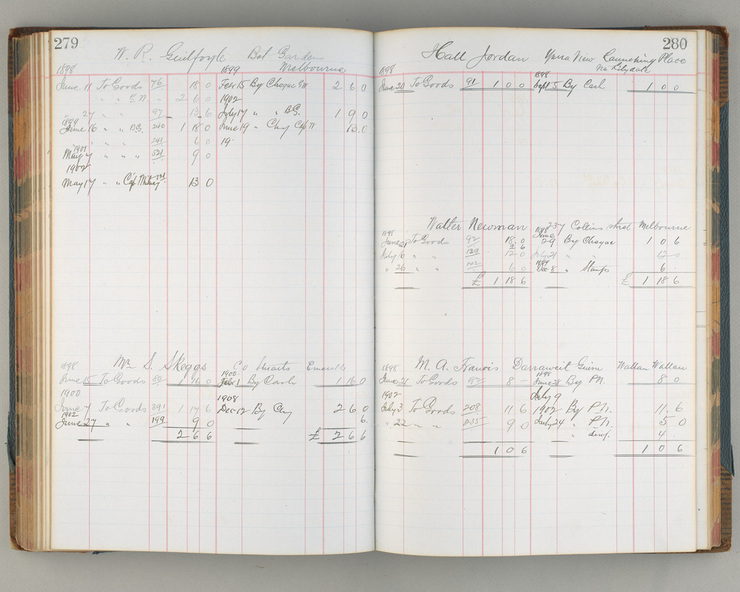 279
W. R. Guilfoyle Bot Gardens
Melbourne
1898 1899
June 17 To Goods 76 18 0 Feb 15 By Cheque 2 6 0
2 6 0 1902
" 27 " " 97 12 6 July 17 " " B.G. 1 9 0
1899
June 16 " " 1 18 0 June 19 " 13.0
" " " 6 0 19
1901
May 7 " " " 531 9 0
1902
May 17 " " 13 0
1898 Mrs S. Skeggs Co Hearts Emerald
1900
June 15 To Goods 1 16 0 Feby 1 By Cash 1 16 0
1900 1908
June 7 To Goods 391 1 17 6 Dec 12 By Chq 2 6 0
1902
June 27 " " 199 9 0 6
2 6 6 £ 2 6 6
280
Hall Jordan Yarra View Launching Place
Via Lilydale
1898 1898
June 20 To Goods 91 1 0 0 Sept 5 By Cash 1 0 0
Walter Newman 237 Collins street Melbourne
1898 1898
June 21 To Goods 92 18 0 June 29 By Cheque 1 0 6
2 6
July 16 " " 129 12 0 July 21 " 12 0
1899
" 26 " " 142 6 0 Dec 8 " Stamps 6
£ 1 18 6 £ 1 18 6
M. A. Francis Darraweit Guim Wallan Wallan
1898 1898
June 21 To Goods 95 8 - June 28 By P.N. 8 0
1902 July 9
July 3 To G 208 11 6 1902 By P.N. 11. 6
" 22 " " 9 0 July 24 " P.N. 5 0
" " 4.
1 0 6 1 0 6